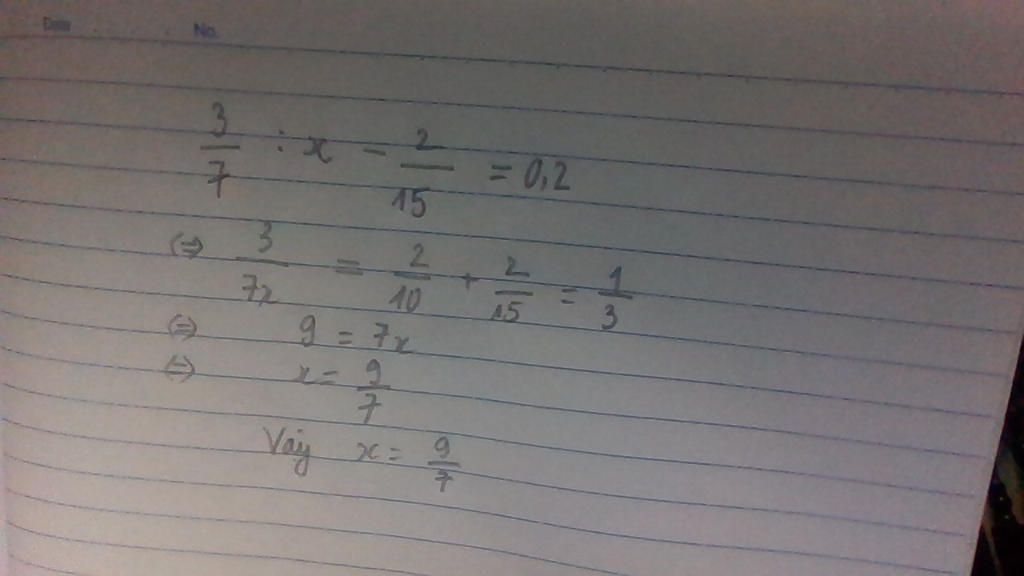 Date No.
3/7 : x - 2/15 = 0,2
(=) 3/7x = 2/10 + 2/15 = 1/3
(=) 9 = 7x
(=) x = 9/7
Vậy x = 9/7